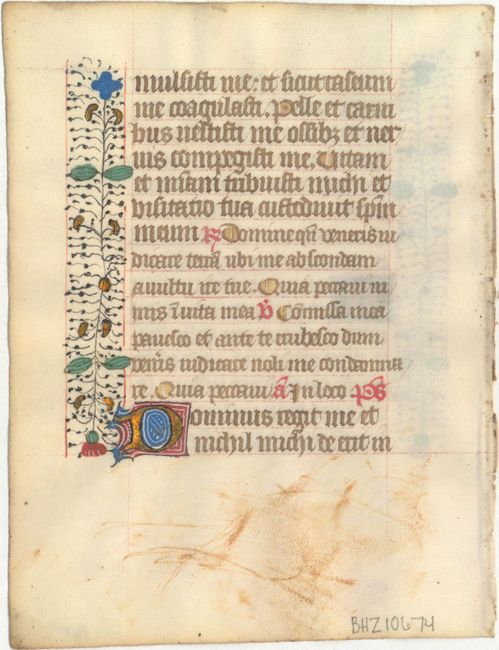 mulsisti me: et sicut caseum
me coagulasti. Pelle et carni
bus uestisti me ossibꝫ et ner
uis compegisti me. Uitam
et miam tribuisti michi et
visitatio tua custodiuit spm
meum R Domine qn veneris iu
dicare terra ubi me abscondam
a uultu ire tue. Quia peccaui ni
mis i uita mea V Comissa mea
pauesco et ante te erubesco dum
veneris iudicare noli me condemna
re. Quia peccaui a In loco ps
Dominus regit me et
nichil michi de erit in
BHZ106 74